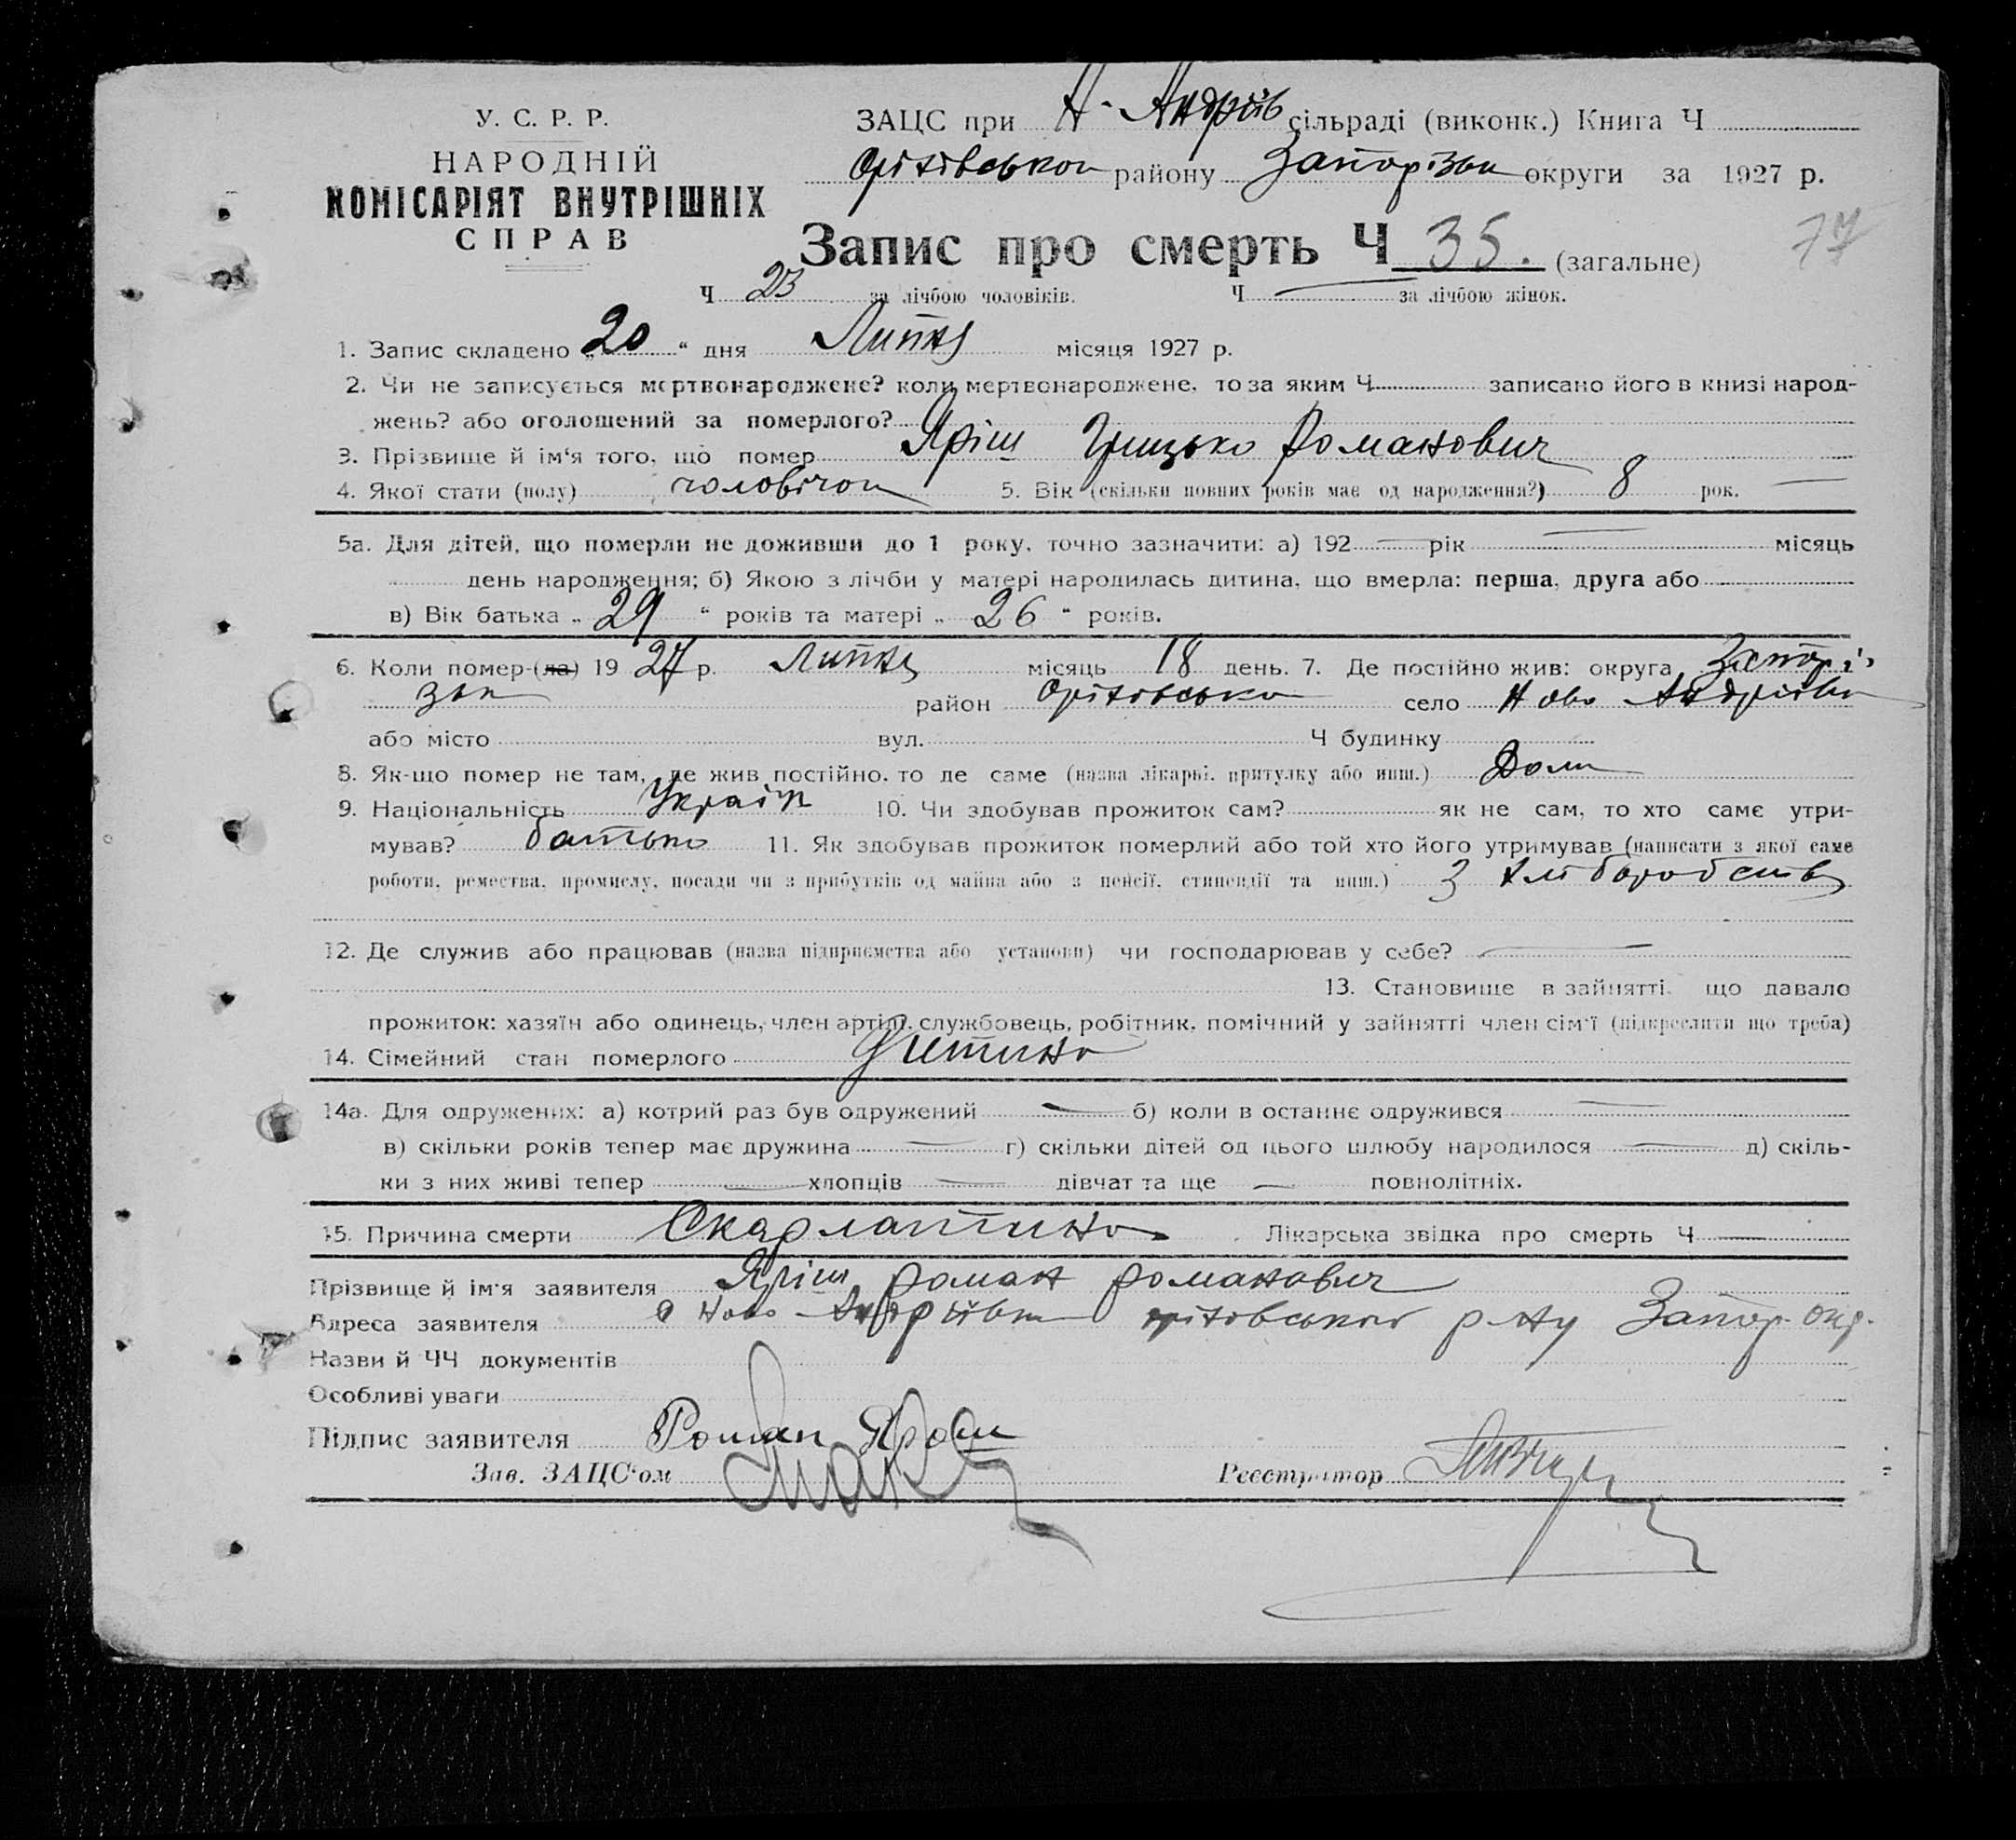 У. С. Р. Р.
НАРОДНІЙ
КОМІСАРІЯТ ВНУТРІШНІХ
СПРАВ
ЗАЦС при Н-Андріїв сільраді (виконк.) Книга Ч
Оріхівськои району Запорізьк округи за 1927 р.
Запис про смерть Ч 35. (загальне)
77
Ч 23 за лічбою чоловіків. Ч — за лічбою жінок.
1. Запис складено „20“ дня Липня місяця 1927 р.
2. Чи не записується мертвонароджене? коли мертвонароджене, то за яким Ч записано його в книзі народ-
жень? або оголошений за померлого?
3. Прізвище й ім‘я того, що помер Яріш Грицько Романович
4. Якої стати (полу) чоловічои 5. Вік (скільки повних років має од народження?) 8 рок. —
5а. Для дітей, що померли не доживши до 1 року, точно зазначити: а) 192 — рік — місяць
день народження; б) Якою з лічби у матері народилась дитина, що вмерла: перша, друга або
в) Вік батька „29“ років та матері „26“ років.
6. Коли помер-(ла) 1927 р. Липня місяць 18 день. 7. Де постійно жив: округа Запорі-
зьк район Оріхівсько село Ново Андріївк
або місто вул. Ч будинку
8. Як-що помер не там, де жив постійно, то де саме (назва лікарні, притулку або инш.) Дома
9. Національність Україн 10. Чи здобував прожиток сам? як не сам, то хто саме утри-
мував? батько 11. Як здобував прожиток померлий або той хто його утримував (написати з якої саме
роботи, ремества, промислу, посади чи з прибутків од майна або з пенсії, стипендії та инш.) З хліборобства
12. Де служив або працював (назва підприємства або установи) чи господарював у себе? —
13. Становище в зайнятті, що давало
прожиток: хазяїн або одинець, член артілі, службовець, робітник, помічний у зайнятті член сім‘ї (підкреслити що треба)
14. Сімейний стан померлого Дитина
14а. Для одружених: а) котрий раз був одружений — б) коли в останнє одружився —
в) скільки років тепер має дружина — г) скільки дітей од цього шлюбу народилося — д) скіль-
ки з них живі тепер — хлопців — дівчат та ще — повнолітніх.
15. Причина смерти Скарлатина Лікарська звідка про смерть Ч —
Прізвище й ім‘я заявителя Яріш Роман Романович
Адреса заявителя с Ново-Андріївк Оріхівського р-ну Запор. окр.
Назви й ЧЧ документів
Особливі уваги
Підпис заявителя Роман Ярош
Зав. ЗАЦС‘ом Реєстратор